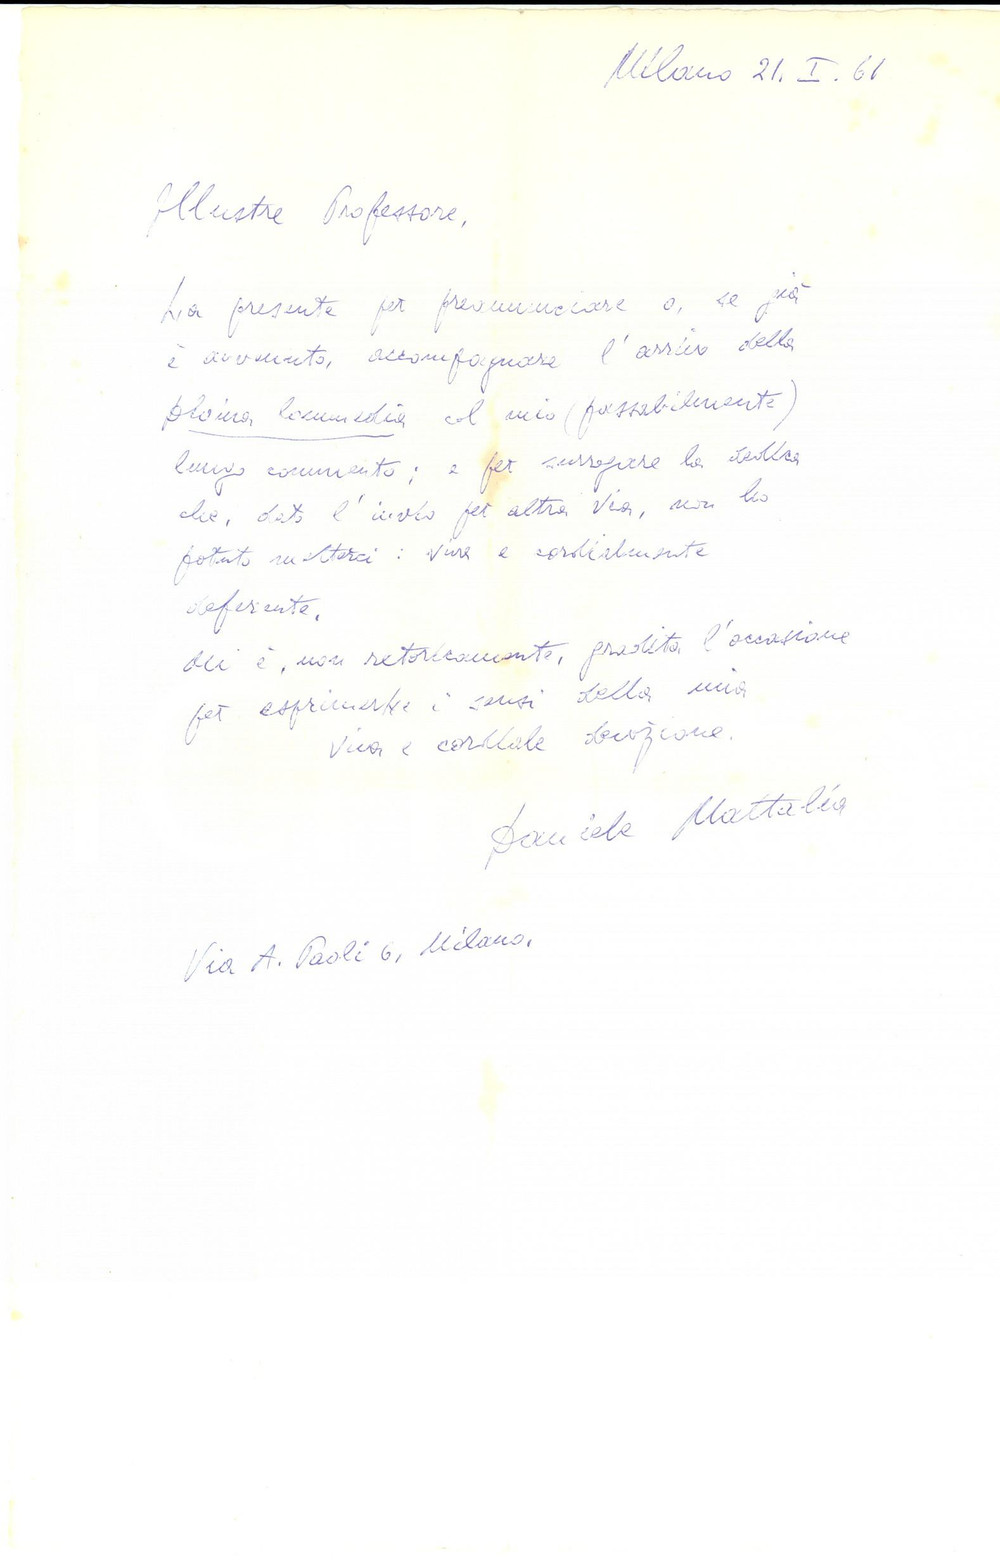 Milano 21. I. 61
Illustre Professore,
La presente per preannunciare o, se già
è avvenuto, accompagnare l'arrivo della
Divina Commedia col mio (passabilmente)
lungo commento; e per surrogare la dedica
che, dato l'invio per altra via, non ho
potuto metterci: viva e cordialmente
deferente.
Mi è, non retoricamente, gradita l'occasione
per esprimerLe i sensi della mia
viva e cordiale devozione.
Daniele Mattalia
Via A. Paoli 6, Milano.